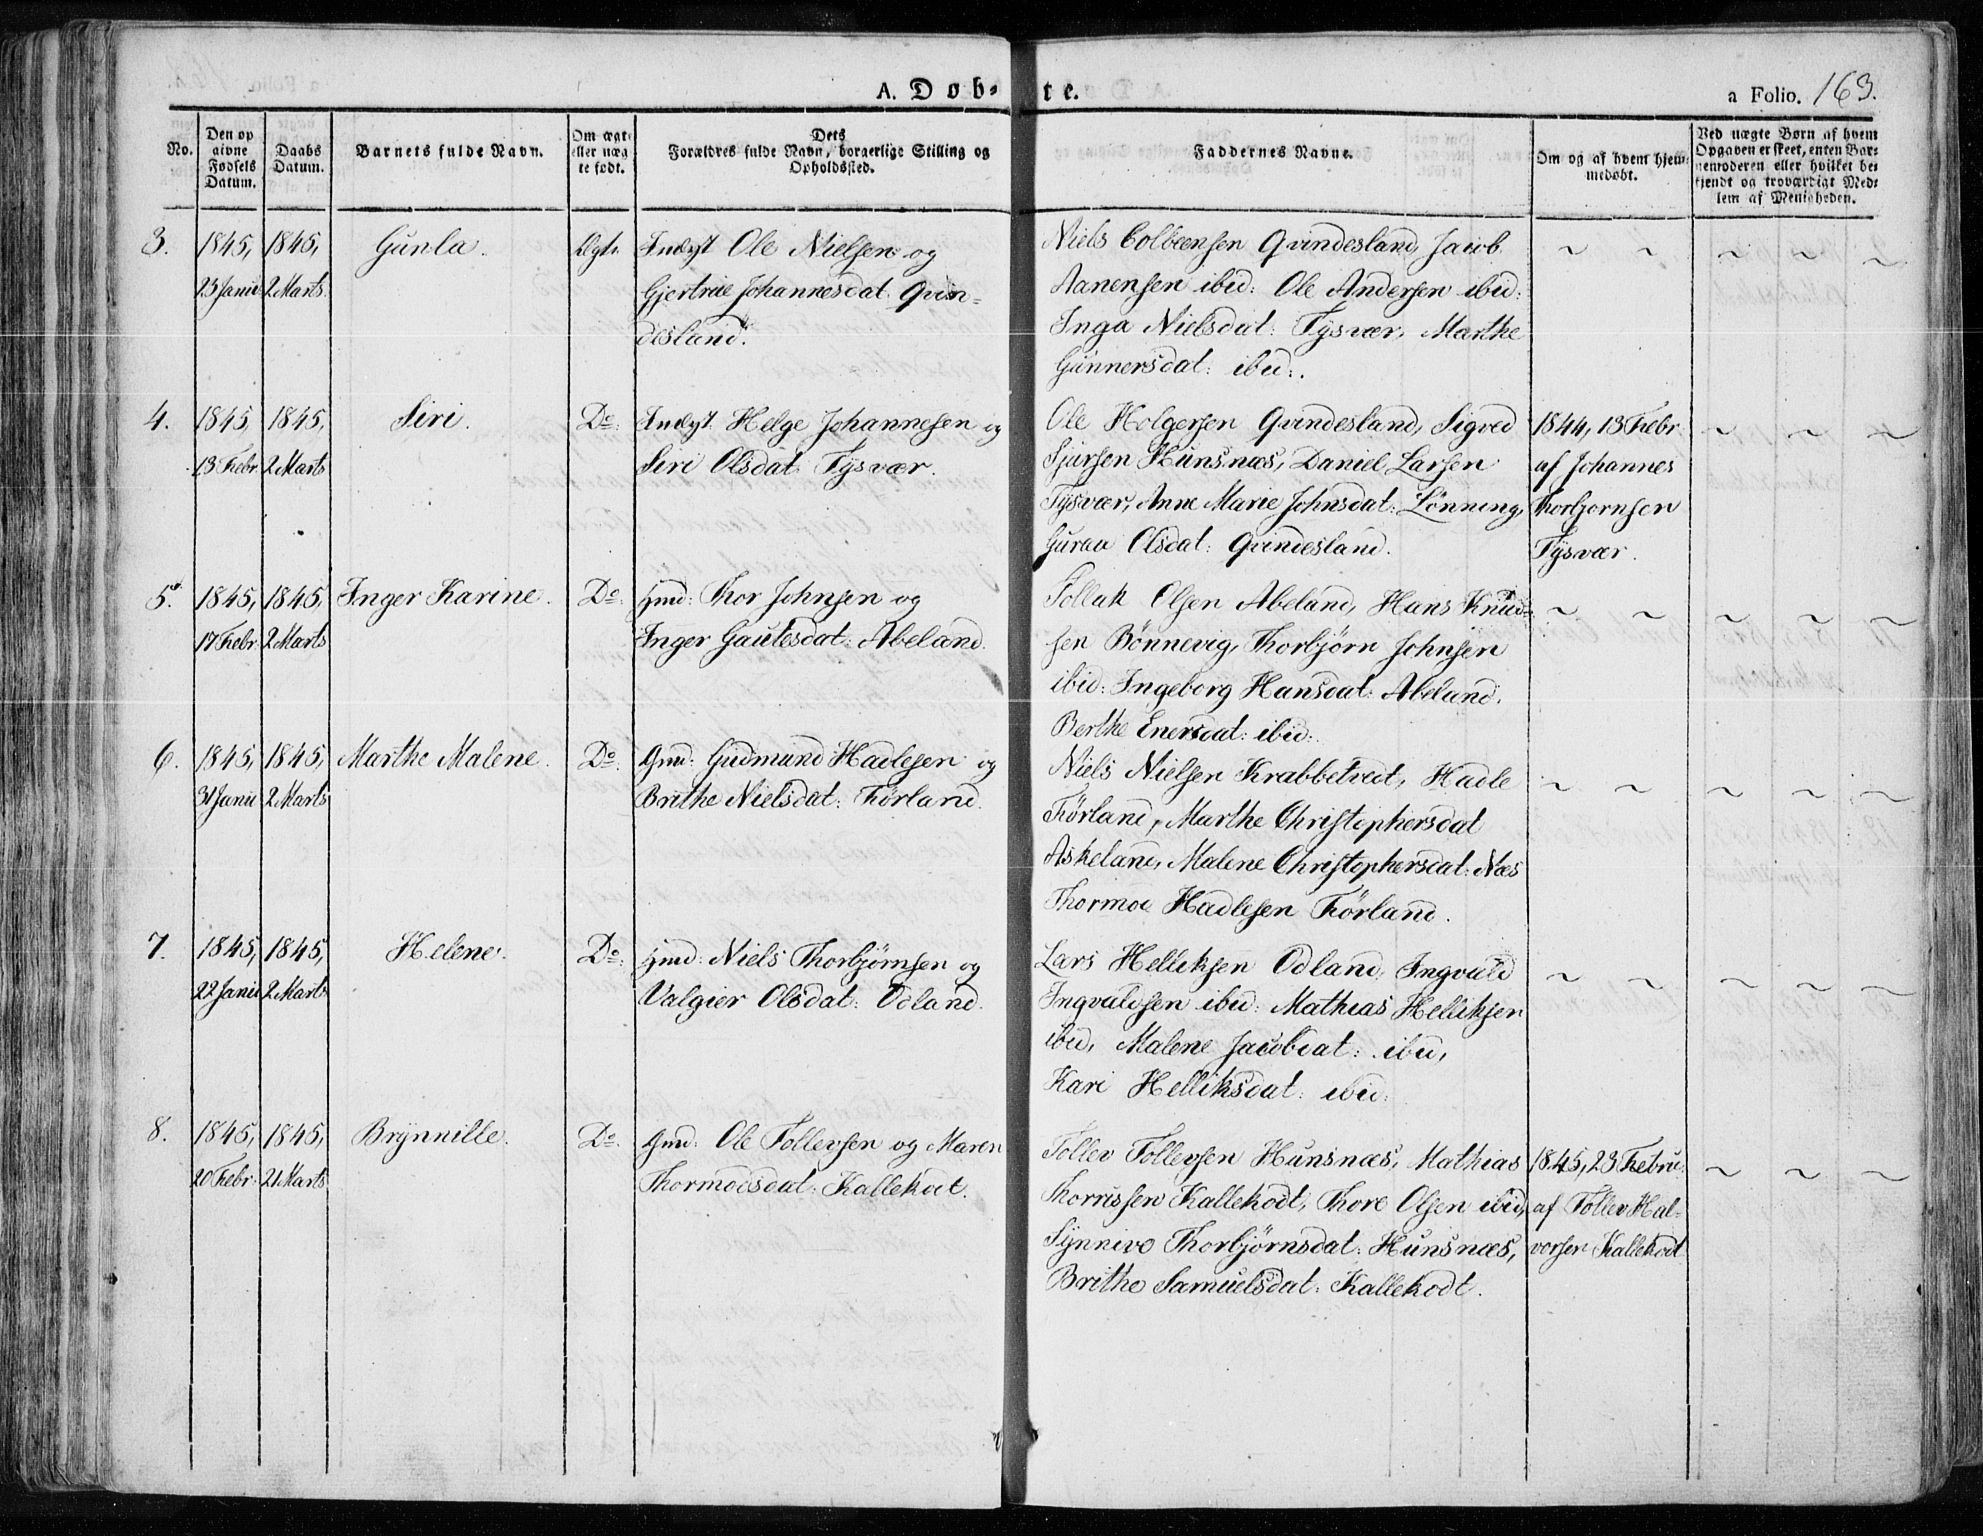 A. Døb-te.
a Folio. 163.
No.
Den op
givne
Fødsels
Datum.
Daabs
Datum.
Barnets fulde Navn.
Om ægte
eller uæg
te født.
Dets
Forældres fulde Navn, borgerlige Stilling og
Opholdssted.
Faddernes Navne.
Om og af hvem hjem-
medøbt.
Ved uægte Børn af hvem
Opgaven er skeet, enten Bar-
nemoderen eller hvilket be-
kjendt og troværdigt Med-
lem af Menigheden.
3.
1845,
23 Janu
1845,
2 Marts
Gunla.
Ægte
Indst Ole Nielsen og
Gjertrue Johannesdat. Qvin-
desland.
Niels Colbeensen Qvindesland, Jacob
Aanensen ibid: Ole Andersen ibid:
Inga Nielsdat: Tysvær, Marthe
Gunnersdat: ibid:.
~ ~ ~ ~ ~
4.
1845,
13 Febr
1845,
2 Marts
Siri.
Do:
Indst Helge Johannesen og
Siri Olsdat Tysvær.
Ole Holgersen Qvindesland, Sigved
Sjursen Hunsnæs, Daniel Larsen
Tysvær, Anne Marie Johnsdat: Lønning,
Guroe Olsdat: Qvindesland.
1844, 13 Febr
af Johannes
Thorbjornsen
Tysvær.
~ ~ ~
5.
1845,
17 Febr
1845,
2 Marts
Inger Karine.
Do:
Gmd: Thor Johnsen og
Inger Gautesdat: Abeland.
Tollak Olsen Abeland, Hans Knud-
sen Bønnevig, Thorbjørn Johnsen
ibid: Ingeborg Hansdat: Abeland.
Berthe Enersdat: ibid:
~ ~ ~ ~ ~
6.
1845,
31 Janu
1845,
2 Marts
Marthe Malene.
Do:
Gmd: Gudmund Hadlesen og
Brithe Nielsdat: Førland.
Niels Nielsen Krabbetvedt, Hadle
Førland, Marthe Christophersdat
Askeland, Malene Christophersdat: Næs
Thormod Hadlesen Førland.
~ ~ ~ ~ ~
7.
1845,
22 Janu
1845,
2 Marts
Helene.
Do:
Gmd: Niels Thorbjørnsen og
Valgier Olsdat: Odland.
Lars Helliksen Odland, Ingvald
Ingvaldsen ibid: Mathias Helliksen
ibid, Malene Jacobdat: ibid,
Kari Helliksdat: ibid:
~ ~ ~ ~ ~
8.
1845,
20 Febr.
1845,
21 Marts
Brynnille.
Do:
Gmd: Ole Tollevsen og Maren
Thormodsdat: Kallekodt.
Tollev Tollevsen Hunsnæs, Mathias
Thorrissen Kallekodt, Thore Olsen ibid,
Synnive Thorbjørnsdat: Hunsnæs,
Brithe Samuelsdat: Kallekodt.
1845, 23 Febru.
af Tollev Hal-
vorsen Kallekodt
~ ~ ~